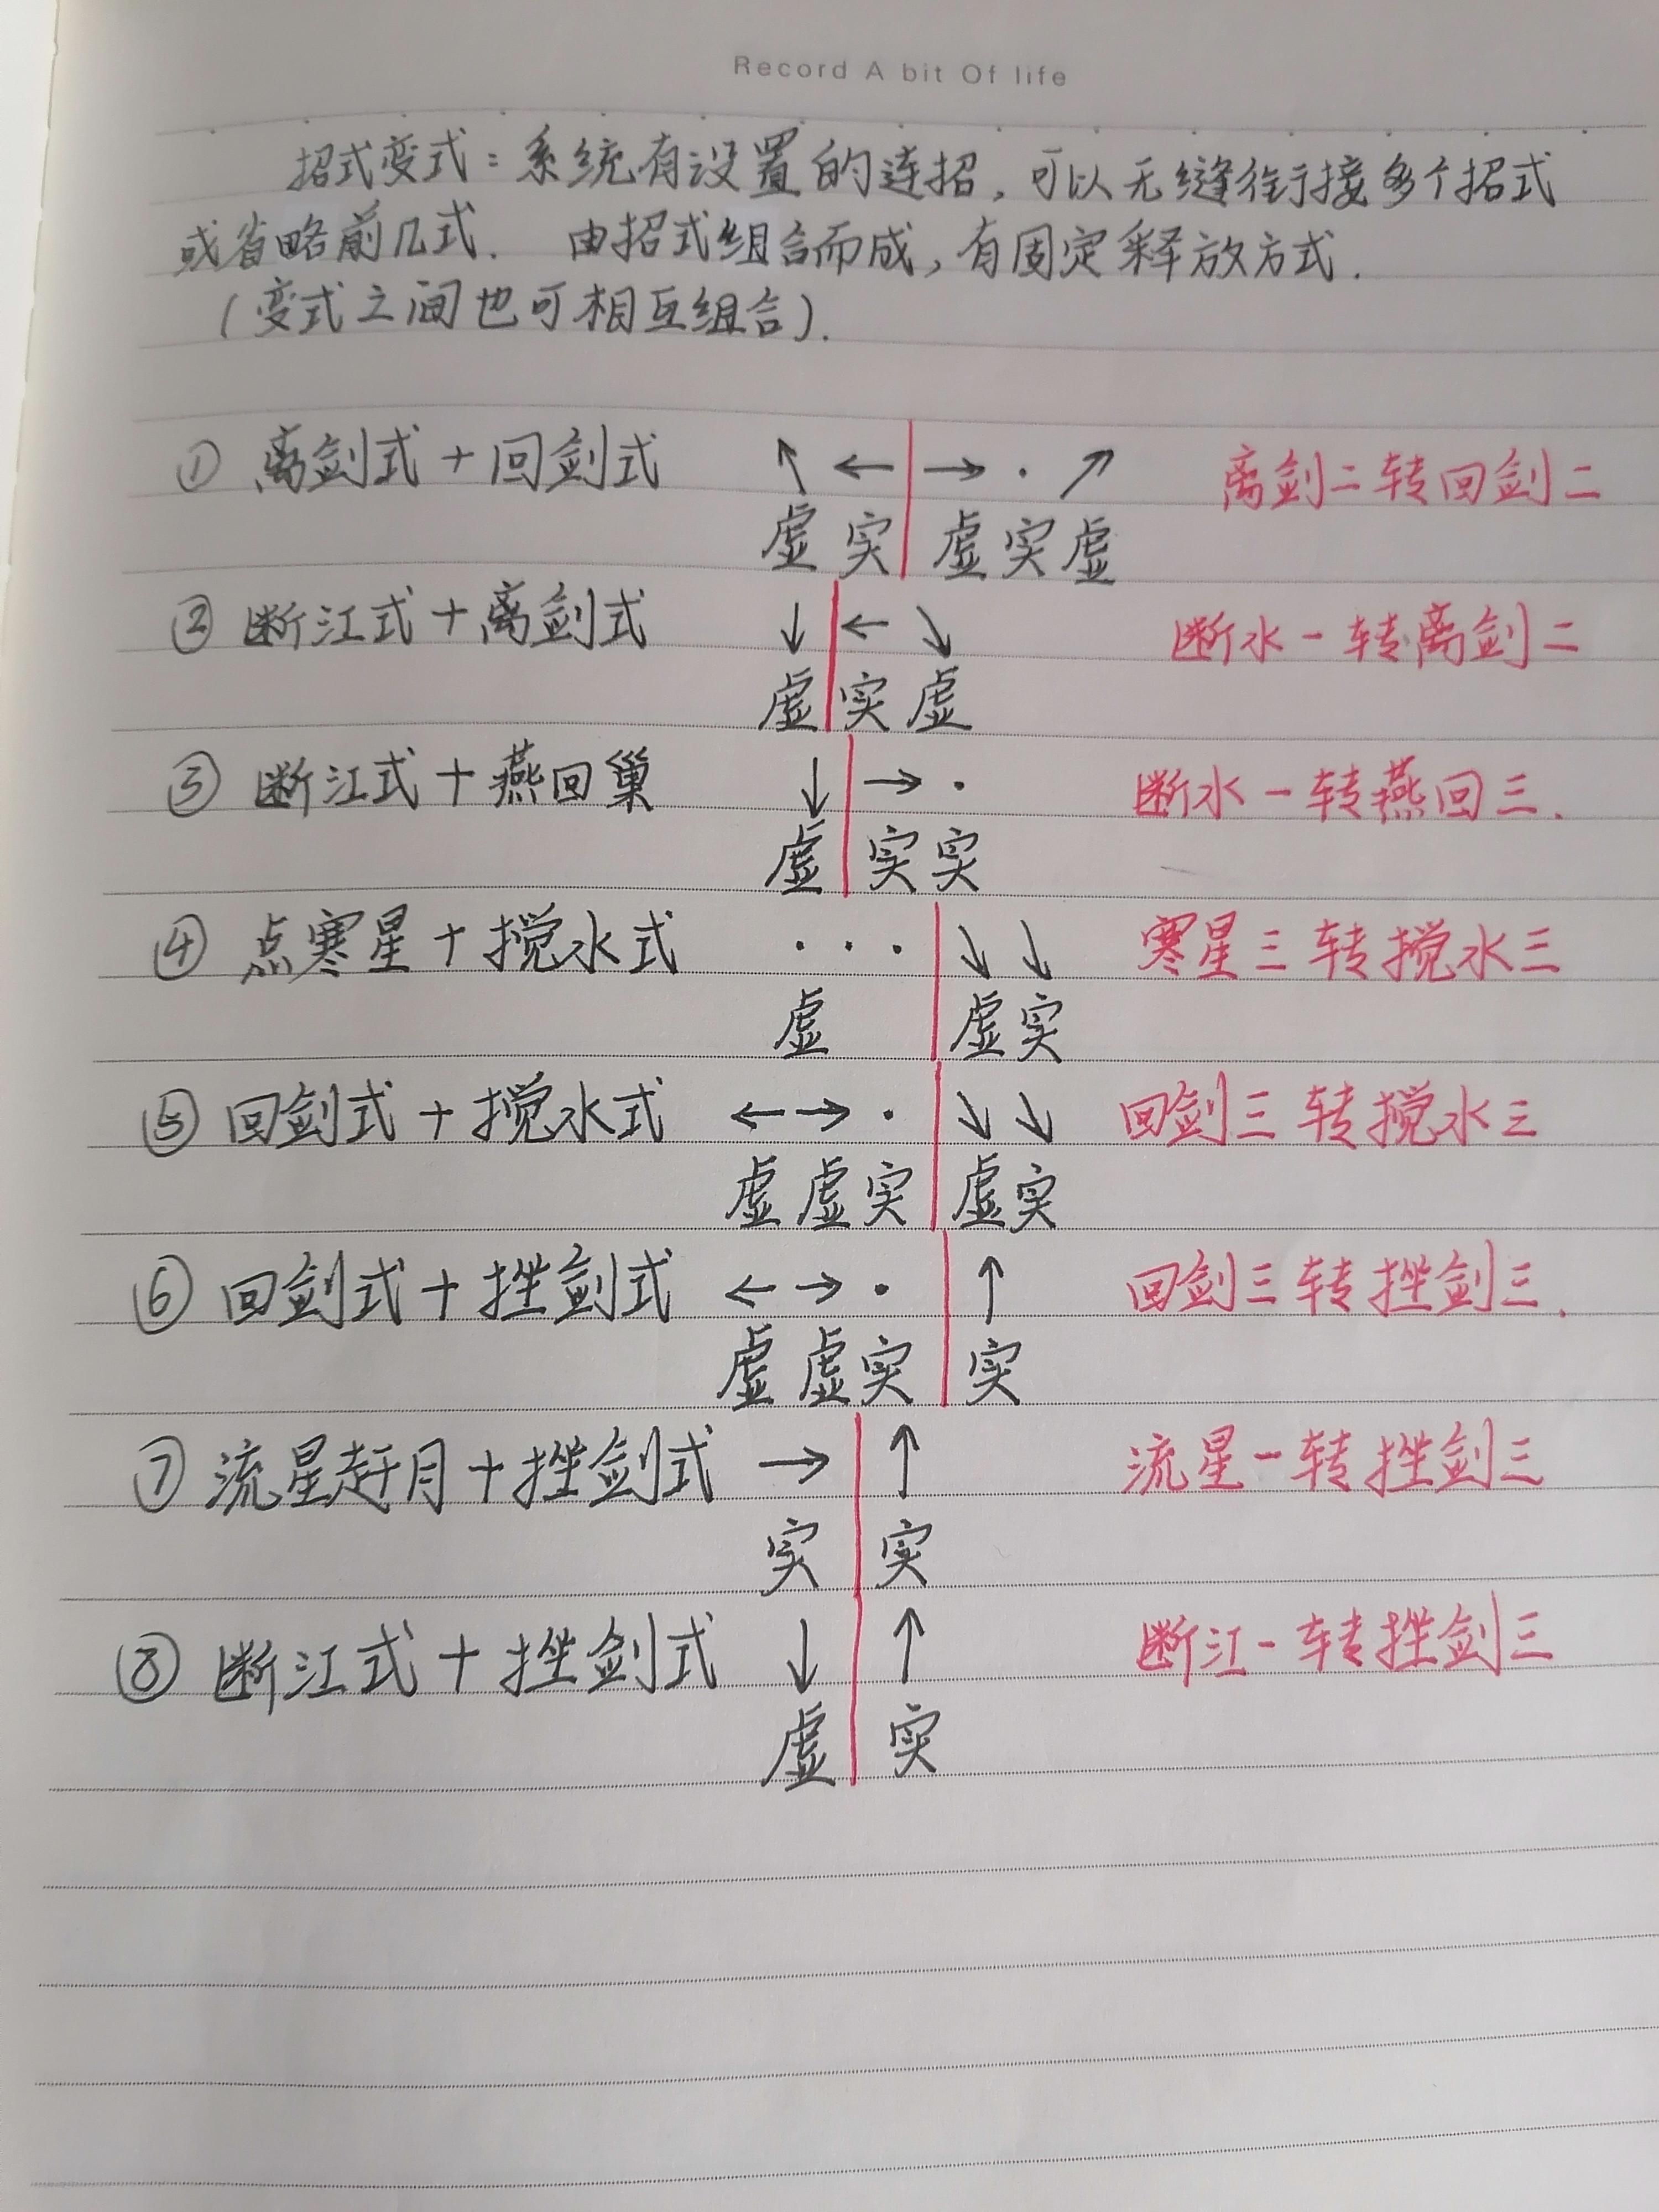 Record A bit Of life
招式变式：系统有设置的连招，可以无缝衔接多个招式
或省略前几式． 由招式组合而成，有固定释放方式．
（变式之间也可相互组合）．
① 离剑式＋回剑式 ↖ ← | → · ↗ 离剑二转回剑二
虚 实 | 虚 实 虚
② 断江式＋离剑式 ↓ | ← ↘ 断水一转离剑二
虚 | 实 虚
③ 断江式＋燕回巢 ↓ | → · 断水一转燕回三．
虚 | 实 实
④ 点寒星＋搅水式 · · · | ↘ ↘ 寒星三转搅水三
虚 | 虚 实
⑤ 回剑式＋搅水式 ← → · | ↘ ↘ 回剑三转搅水三
虚 虚 实 | 虚 实
⑥ 回剑式＋挫剑式 ← → · | ↑ 回剑三转挫剑三．
虚 虚 实 | 实
⑦ 流星赶月＋挫剑式 → | ↑ 流星一转挫剑三
实 | 实
⑧ 断江式＋挫剑式 ↓ | ↑ 断江一转挫剑三
虚 | 实